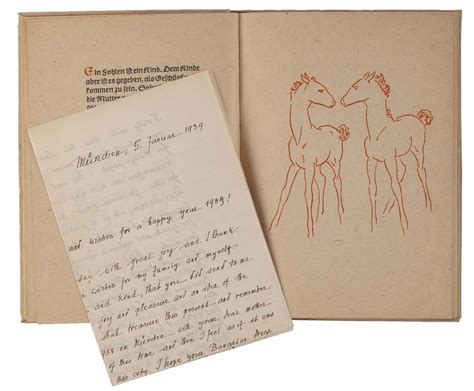 Ein Fohlen ist ein Kind. Dem Kinde
aber ist es gegeben, als Geschöpf
kommen zu sein.
die Mutter
München, 5. Januar 1939
and wishes for a happy year 1939!
day with great joy and I thank
wishes for my family and myself
and kind, that you did send to me
joy and pleasure and an idea of the
shall treasure this present and remember
938 in München with your dear mother
of this time and then I feel as if it was
this city. I hope your Bavarian Dress